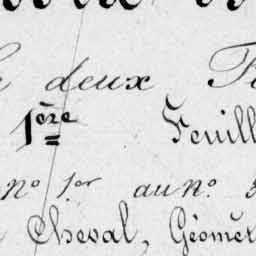 deux
1ère Feuill
no 1er au no.
Cheval, Géomèt